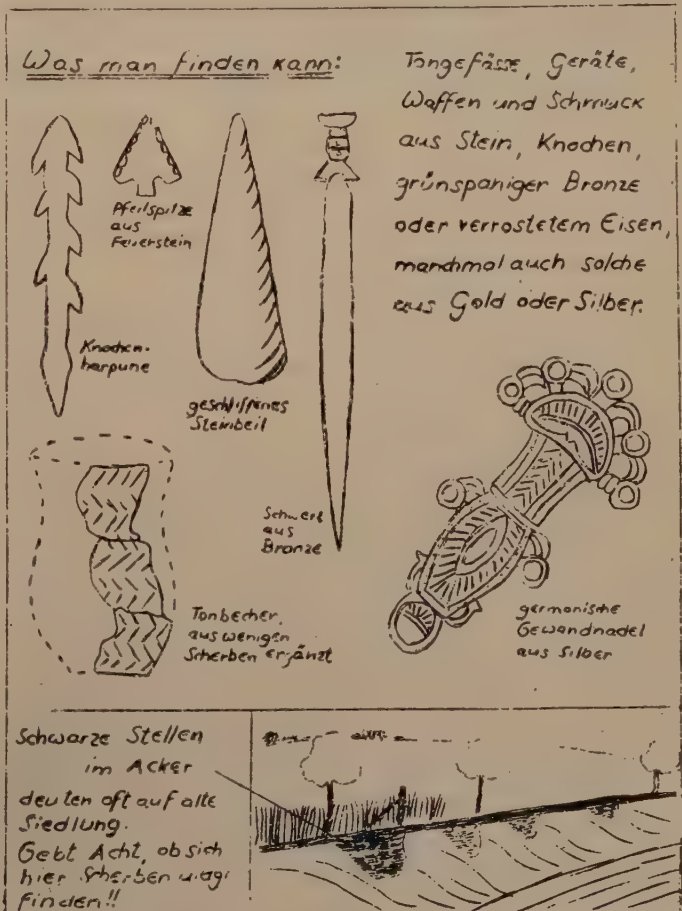 Was man finden kann:
Tongefässe, Geräte,
Waffen und Schmuck
aus Stein, Knochen,
grünspaniger Bronze
oder verrostetem Eisen,
manchmal auch solche
aus Gold oder Silber.
Pfeilspitze
aus
Feuerstein
Knochen-
harpune
geschliffenes
Steinbeil
Schwert
aus
Bronze
Tonbecher,
aus wenigen
Scherben ergänzt
germanische
Gewandnadel
aus Silber
Schwarze Stellen
im Acker
deuten oft auf alte
Siedlung.
Gebt Acht, ob sich
hier Scherben
finden!!